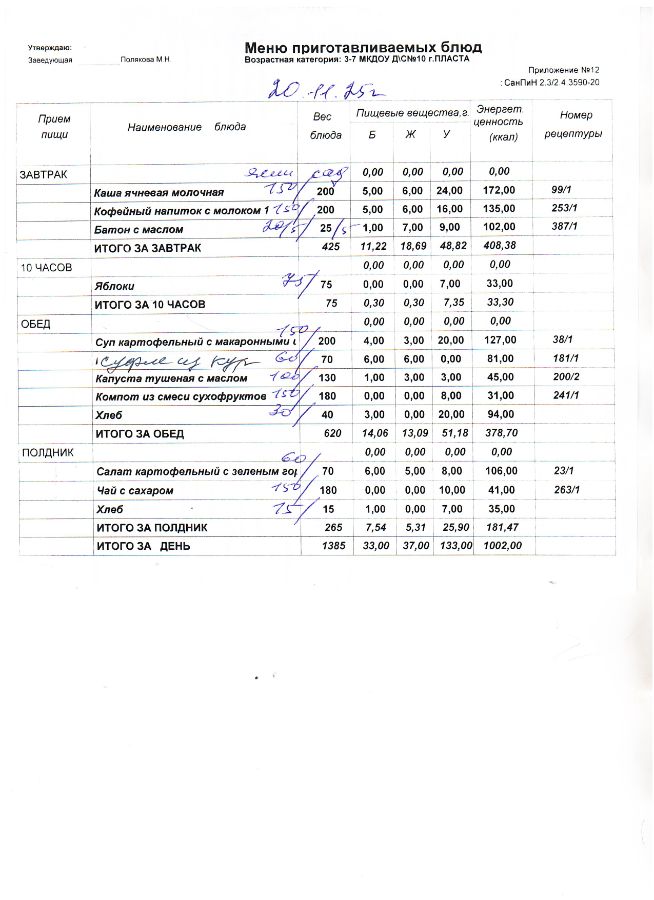 Утверждаю: Меню приготавливаемых блюд
Заведующая Полякова М.Н. Возрастная категория: 3-7 МКДОУ Д\С№10 г.ПЛАСТА
Приложение №12
: СанПиН 2.3/2 4 3590-20
20.11.25г
Прием пищи Наименование блюда Вес блюда Пищевые вещества,г. Б Ж У Энергет. ценность (ккал) Номер рецептуры
ЗАВТРАК ясли сад 0,00 0,00 0,00 0,00
Каша ячневая молочная 150/ 200 5,00 6,00 24,00 172,00 99/1
Кофейный напиток с молоком 1 150/ 200 5,00 6,00 16,00 135,00 253/1
Батон с маслом 20/5/ 25/5 1,00 7,00 9,00 102,00 387/1
ИТОГО ЗА ЗАВТРАК 425 11,22 18,69 48,82 408,38
10 ЧАСОВ 0,00 0,00 0,00 0,00
Яблоки 75/ 75 0,00 0,00 7,00 33,00
ИТОГО ЗА 10 ЧАСОВ 75 0,30 0,30 7,35 33,30
ОБЕД 0,00 0,00 0,00 0,00
Суп картофельный с макаронными 150/ 200 4,00 3,00 20,00 127,00 38/1
суфле из кур 60/ 70 6,00 6,00 0,00 81,00 181/1
Капуста тушеная с маслом 100/ 130 1,00 3,00 3,00 45,00 200/2
Компот из смеси сухофруктов 150/ 180 0,00 0,00 8,00 31,00 241/1
Хлеб 30/ 40 3,00 0,00 20,00 94,00
ИТОГО ЗА ОБЕД 620 14,06 13,09 51,18 378,70
ПОЛДНИК 0,00 0,00 0,00 0,00
Салат картофельный с зеленым гор 60/ 70 6,00 5,00 8,00 106,00 23/1
Чай с сахаром 150/ 180 0,00 0,00 10,00 41,00 263/1
Хлеб 15/ 15 1,00 0,00 7,00 35,00
ИТОГО ЗА ПОЛДНИК 265 7,54 5,31 25,90 181,47
ИТОГО ЗА ДЕНЬ 1385 33,00 37,00 133,00 1002,00